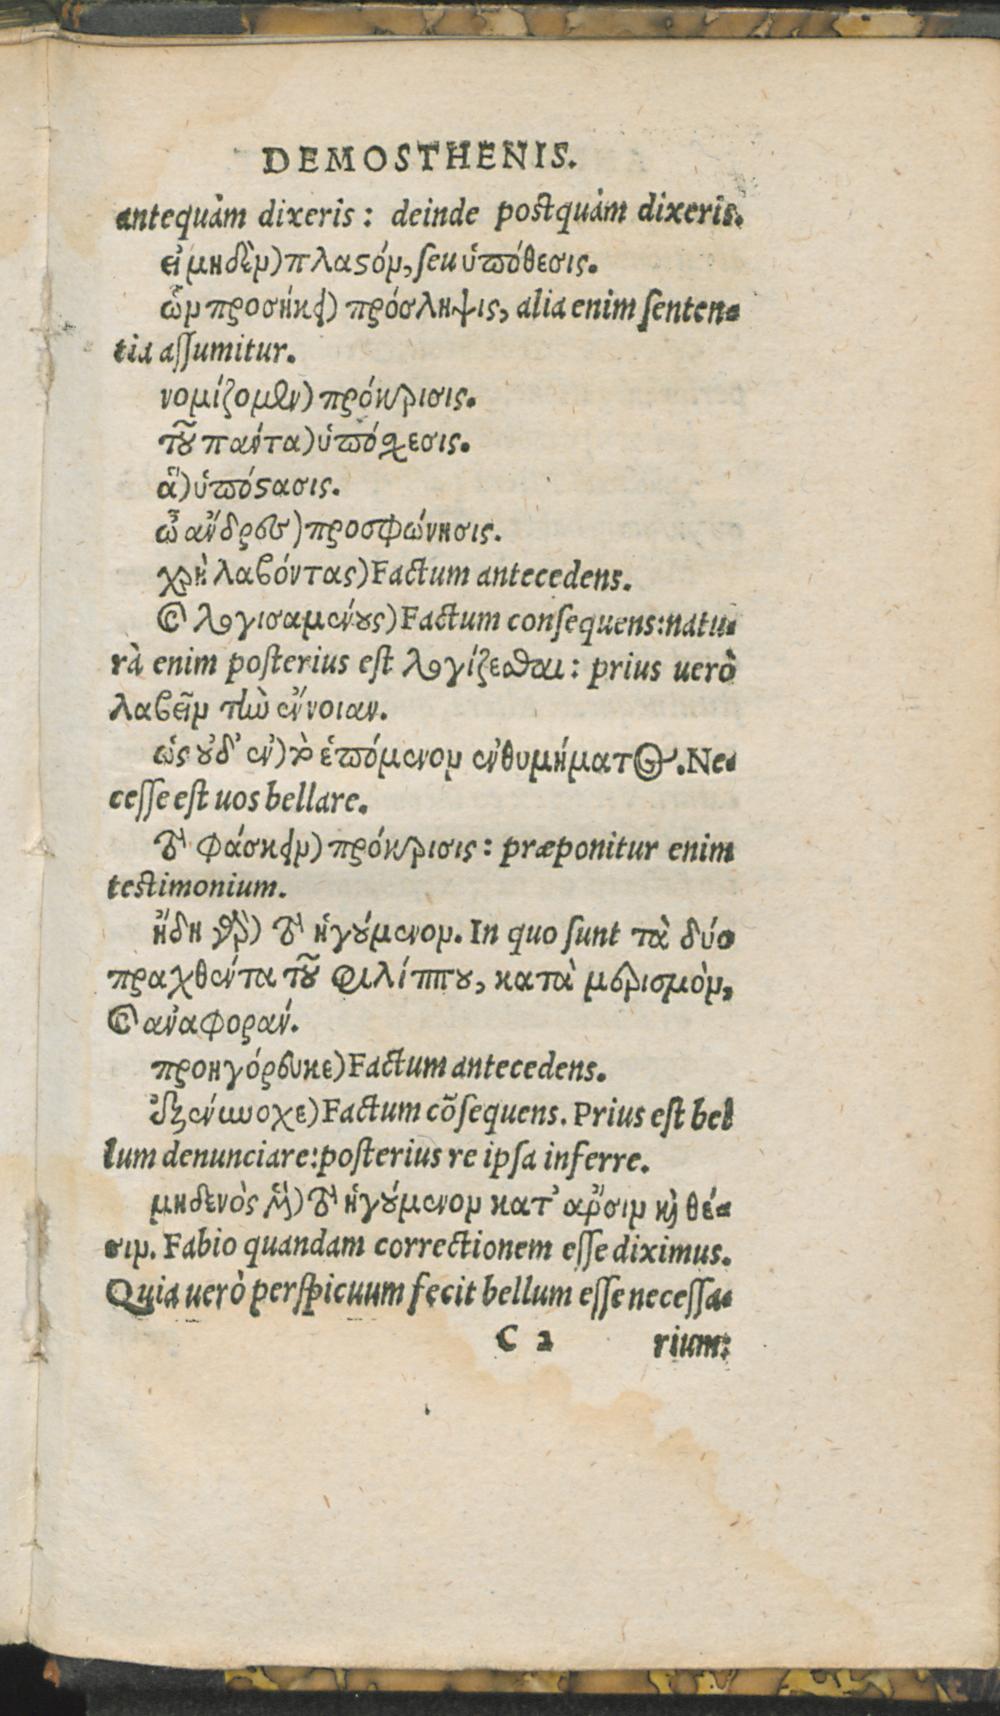 DEMOSTHENIS.
antequàm dixeris: deinde postquàm dixeris.
εἰ μηδὲν) πλαϛόν, ſeu ὑπόθεσις.
ὧν προσήκει) πρόσληψις, alia enim ſenten-
tia aſſumitur.
νομίζομεν) πρόκρισις.
τοῦ πάντα) ὑπόσχεσις.
ἃ) ὑπόϛασις.
ὦ ἄνδρες) προσφώνησις.
χρὴ λαβόντας) Factum antecedens.
καὶ λογισαμένους) Factum conſequens: natu-
rà enim poſterius eſt λογίζεσθαι: prius uerò
λαβεῖν τὴν ἔννοιαν.
ὡς οὐδ' ἐν) τὸ ἑπόμενον ἐνθυμήματος. Ne-
ceſſe eſt uos bellare.
τὸ φάσκειν) πρόκρισις: præponitur enim
testimonium.
ἤδη γὰρ) τὸ ἡγούμενον. In quo ſunt τὰ δύο
πραχθέντα τοῦ Φιλίππου, κατὰ μερισμὸν,
καὶ ἀναφοράν.
προηγόρευκε) Factum antecedens.
ἐξενήνοχε) Factum cōſequens. Prius eſt bel
lum denunciare: poſterius re ipſa inferre.
μηδενὸς μὲν) τὸ ἡγούμενον κατ' ἄρσιν καὶ θέ-
σιν. Fabio quandam correctionem eſſe diximus.
Quia uerò perſpicuum fecit bellum eſſe neceſſa-
C 2 rium: